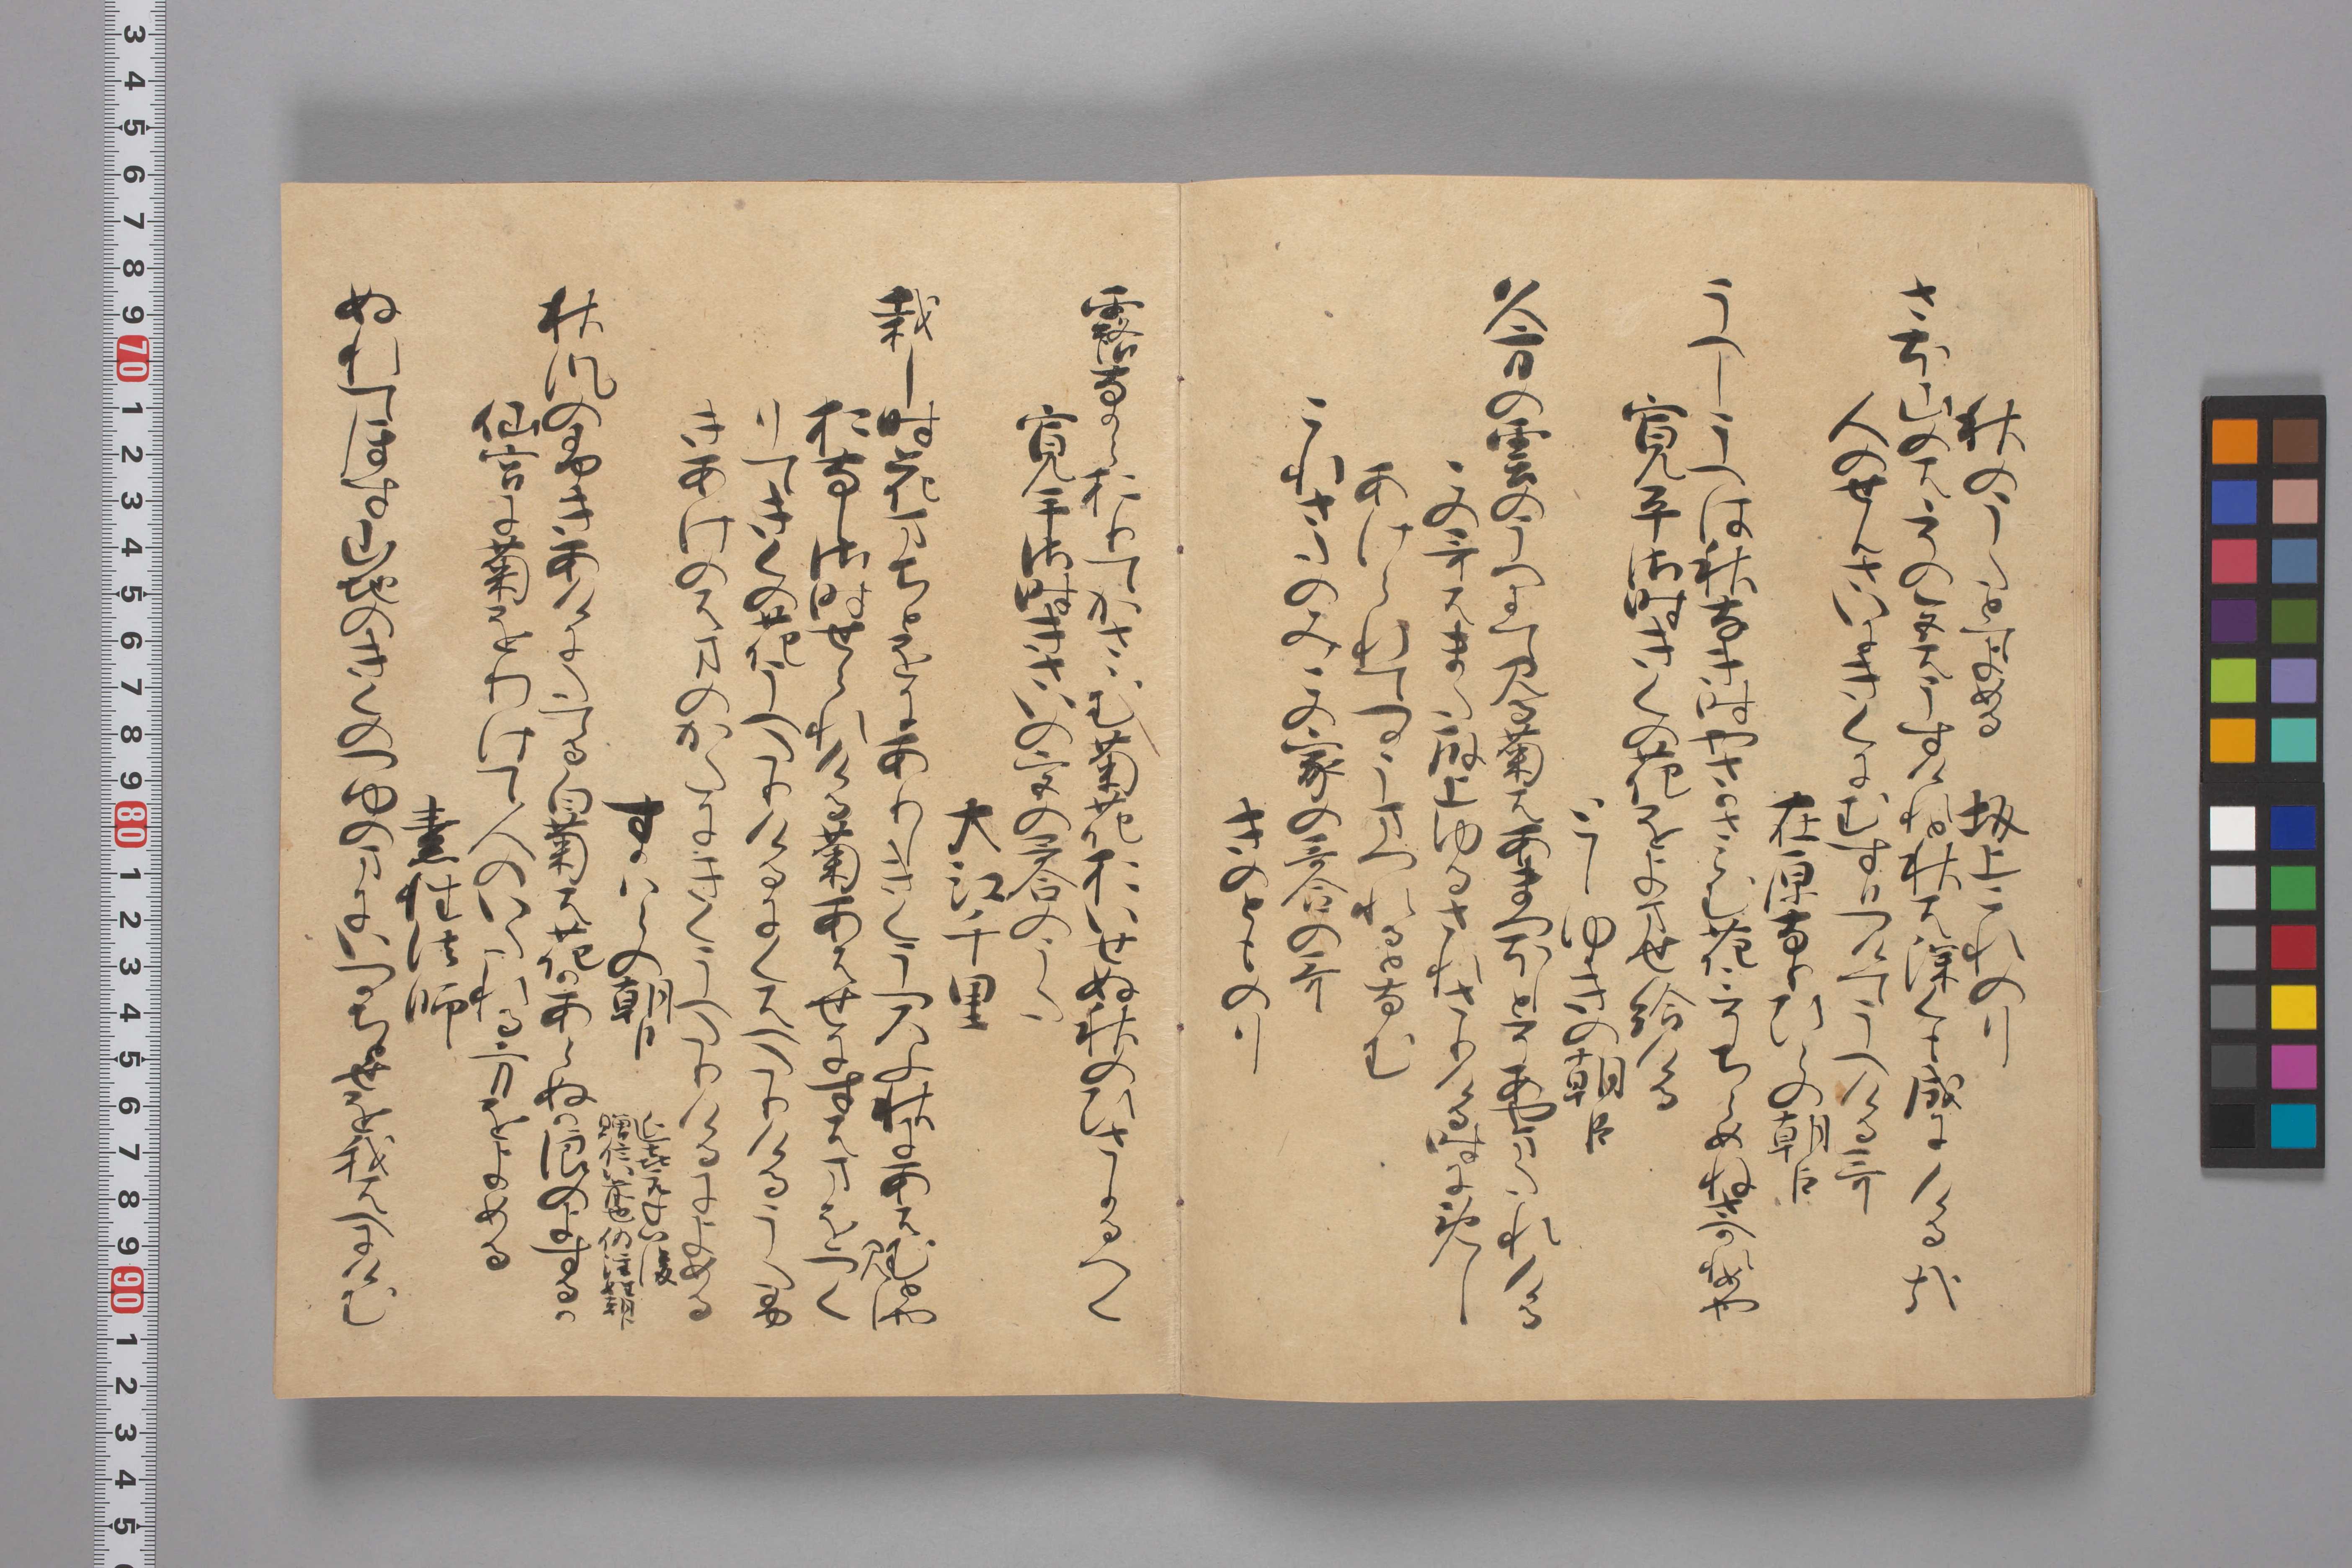 秋のうたとてよめる　坂上これのり
さほ山のはゝその紅葉うすけれと秋は深くも成にける哉
人のせんさいにきくにむすひつけてうへける哥
在原なりひらの朝臣
うへしうへは秋なき時やさかさらむ花こそちらめねさへかれめや
寛平御時きくの花をよませ給ける
としゆきの朝臣
久方の雲のうへにて見る菊はあまつほしとそあやまたれける
この哥はまた殿上ゆるされさりける時にめし
あけられてつかうまつれるとなむ
これさたのみこの家の哥合の哥
きのとものり
露なからおりてかさゝむ菊花おいせぬ秋のひさしかるへく
寛平御時きさいの宮の哥合のうた
大江千里
栽し時花まちとをにありしきくうつろふ秋にあはむとや見し
おなし御時せられける菊あはせにすはまをつく
りてきくの花うへたりけるにくはへたりけるうたふき
あけのはまのかたにきくうへたりけるによめる
すかはらの朝臣
秋風の吹あけにたてる白菊は花かあらぬか浪のよするか
仙宮に菊をわけて人のいたれるかたをよめる
素性法師
ぬれてほす山ちの菊のつゆのまにいつかちとせを我はへにけむ